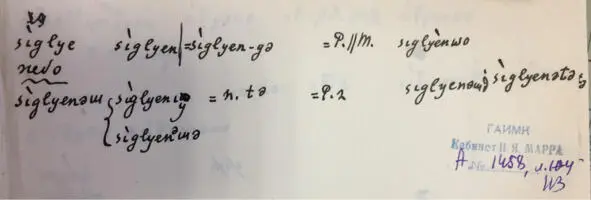 siglye siglyen|=siglyen-gə =P.//M. siglyènwo
небо
siglyenəш { siglyeniy = n. tə =P.2 siglyenəш siglyenətə
siglyenəшə
ГАИМК
Кабинет Н. Я. МАРРА
А № 1458, л.
113